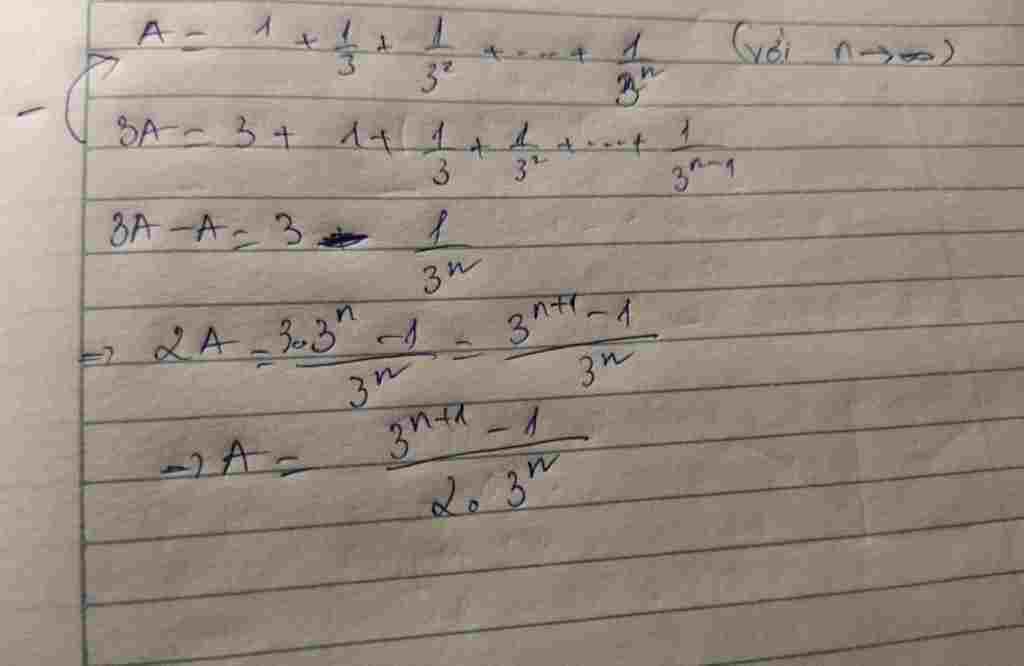 A = 1 + 1/3 + 1/3² + ... + 1/3ⁿ (với n → ∞)
- 3A = 3 + 1 + 1/3 + 1/3² + ... + 1/3ⁿ⁻¹
3A - A = 3 - 1/3ⁿ
→ 2A = (3.3ⁿ - 1)/3ⁿ = (3ⁿ⁺¹ - 1)/3ⁿ
→ A = (3ⁿ⁺¹ - 1)/(2.3ⁿ)